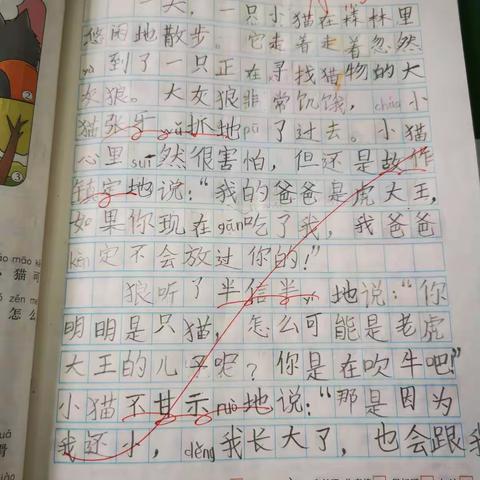 一天，一只小猫在森林里
悠闲地散步。它走着走着忽然
yù到了一只正在寻找猎物的大
灰狼。大灰狼非常饥饿，cháo小
猫张牙wǔ抓地pū了过去。小猫
心里suī然很害怕，但还是故作
镇定地说：“我的爸爸是虎大王，
如果你现在gǎn吃了我，我爸爸
kěn定不会放过你的！”
狼听了半信半yí地说：“你
明明是只猫，怎么可能是老虎
大王的儿子呢？你是在吹牛吧！”
小猫不甘示ruò地说：“那是因为
我还小，děng我长大了，也会跟我
māo
猫可
zěn me
怎么